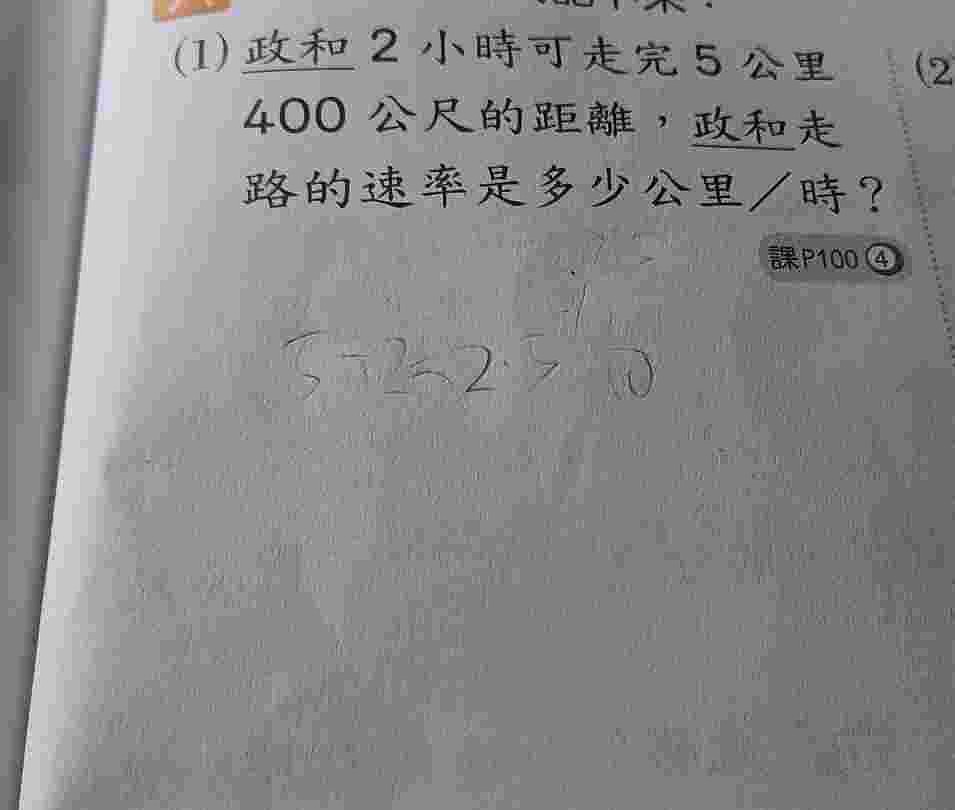 (1) 政和 2 小時可走完 5 公里
400 公尺的距離，政和走
路的速率是多少公里／時？
課P100④
5÷2=2.5
(2